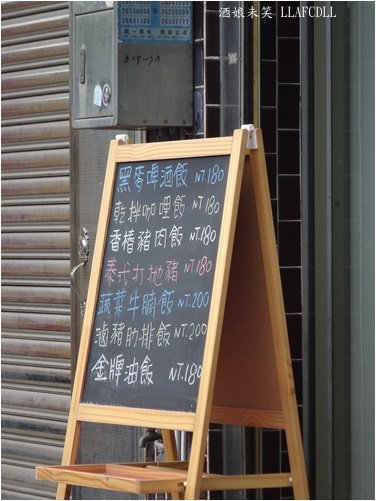 酒娘未笑 LLAFCDLL
黑麥啤酒飯 NT.180
乾拌咖哩飯 NT.180
香椿豬肉飯 NT.180
泰式打拋豬 NT.180
蔬菜牛腩飯 NT.200
滷豬肋排飯 NT.200
金牌油飯 NT.180